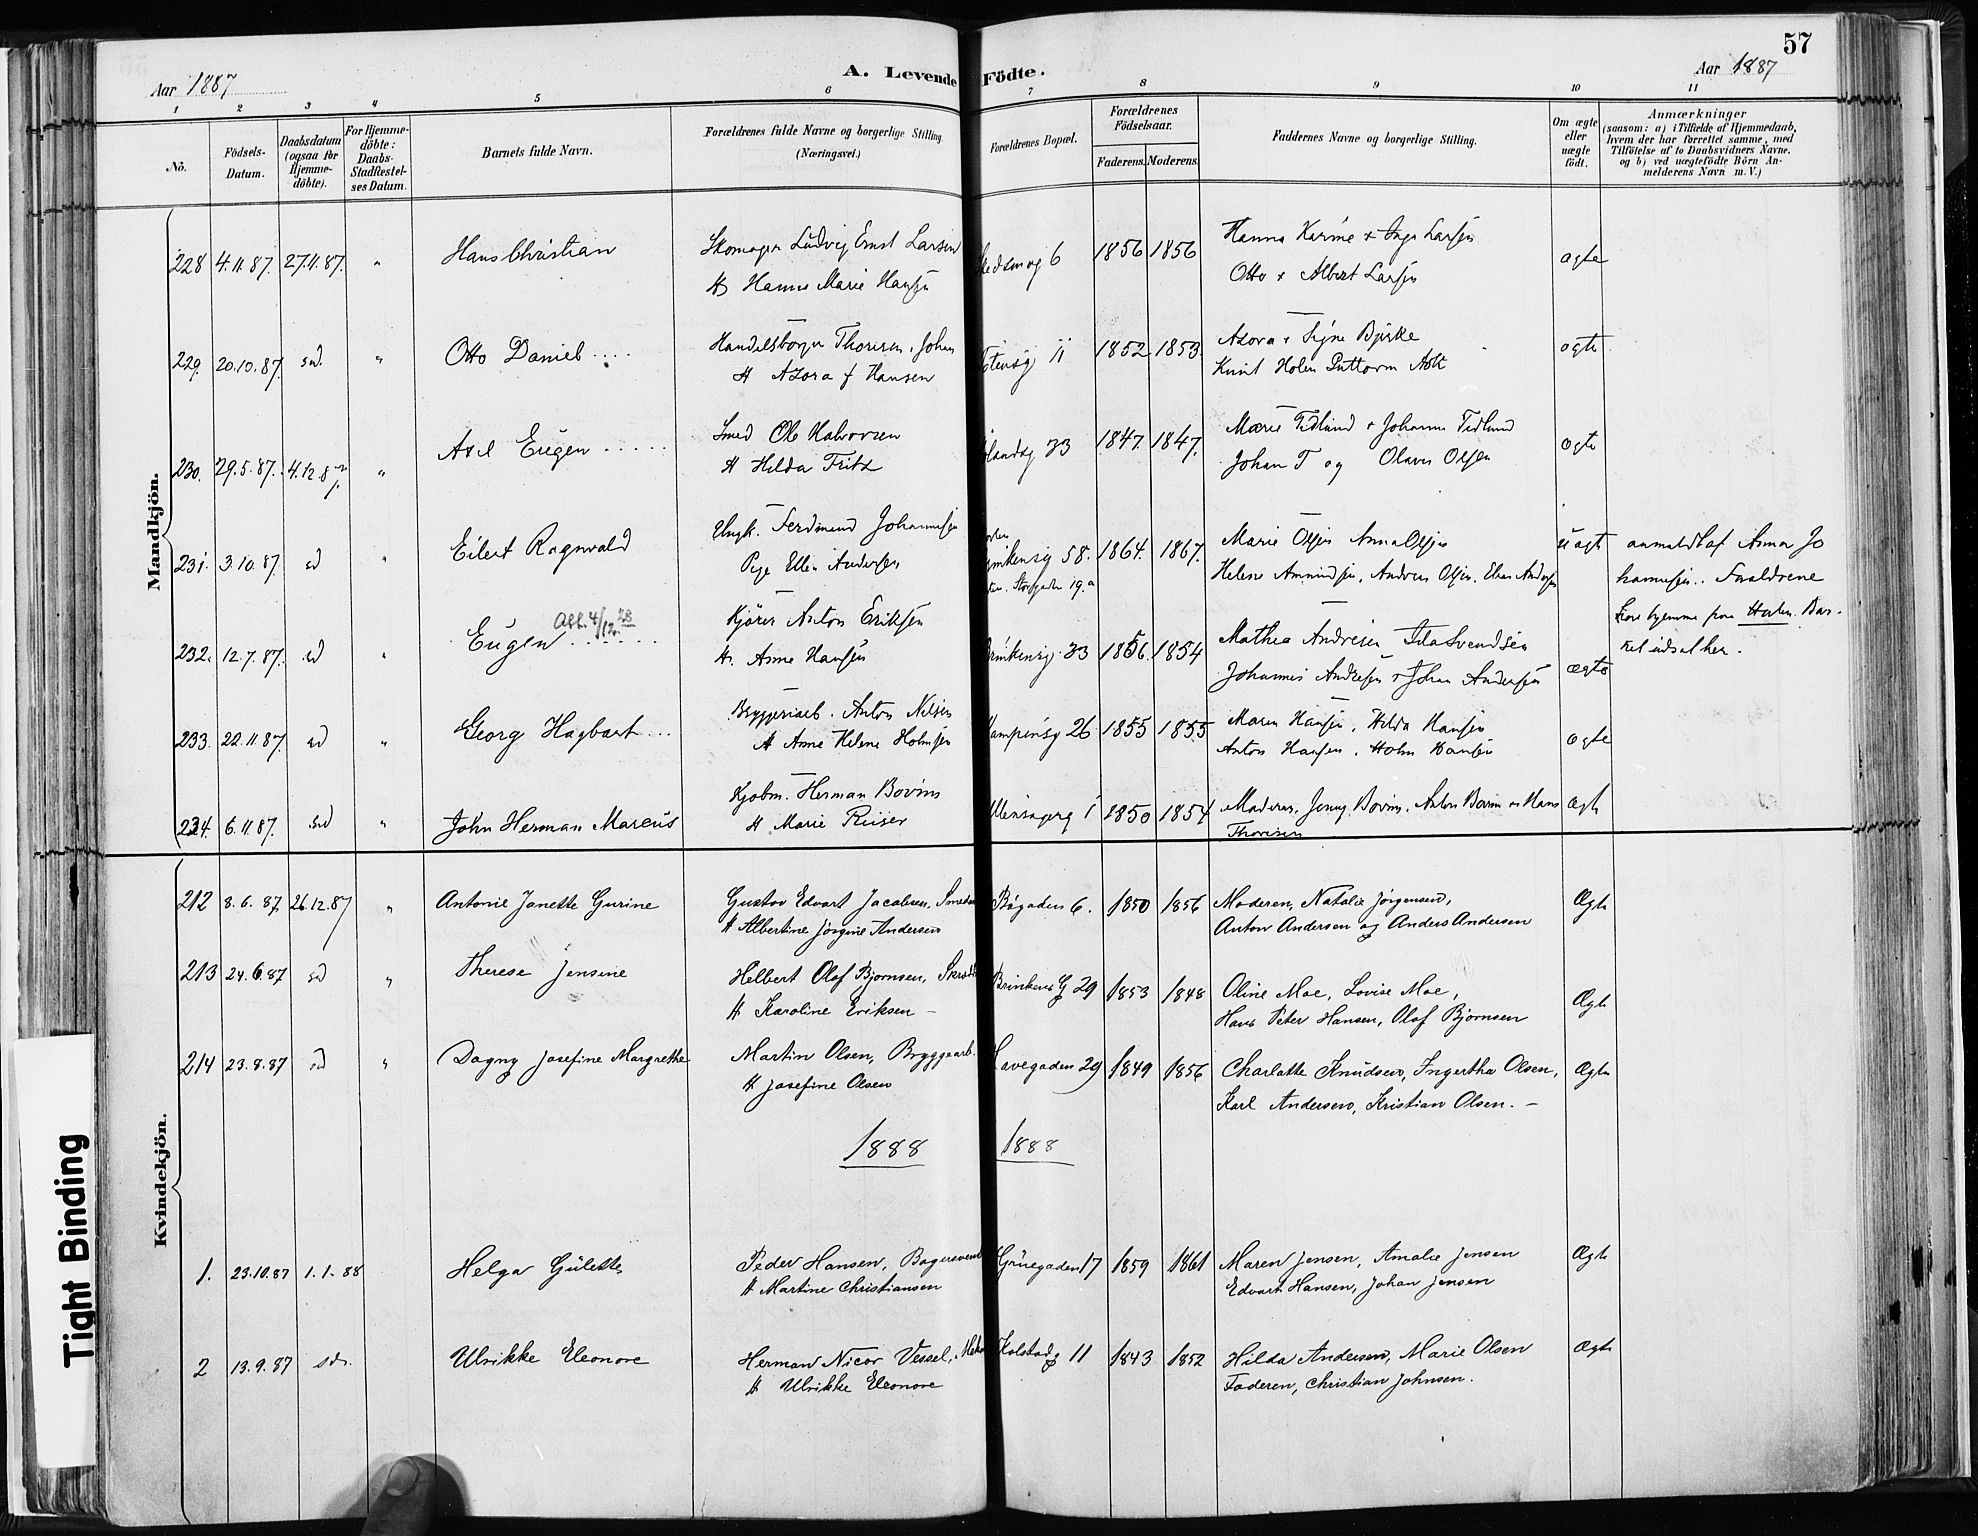 57
Aar 1887
A. Levende Födte.
Aar 1887
1 2 3 4 5 6 7 8 9 10 11
No.
Födsels-Datum.
Daabsdatum (ogsaa for Hjemmedöbte).
For Hjemmedöbte: Daabs-Stadfestelses Datum.
Barnets fulde Navn.
Forældrenes fulde Navne og borgerlige Stilling
(Næringsvei.)
Forældrenes Bopæl.
Forældrenes Födselsaar.
Faderens. Moderens.
Faddernes Navne og borgerlige Stilling.
Om ægte eller uægte födt.
Anmærkninger
(saasom: a) i Tilfælde af Hjemmedaab, hvem der har forrettet samme, med Tilföielse af to Daabsvidners Navne. og b) ved uægtefödte Börn Anmelderens Navn m. V.)
Mandkjön.
228 4.11.87. 27.11.87. " Hans Christian Skomager Ludvig Ernst Larsen 6 1856 1856 Hanna Karine + Inga Larsen ægte
H Hanna Marie Hansen Otto + Albert Larsen
229. 20.10.87. sd. " Otto Daniel Handelsborger Thoresen, Johan 11 1852 1853. Azora + Signe Bjerke ægte
H Azora f Hansen Knut Holen
230. 29.5.87. 4.12.87. " Axel Eugen Smed Ole Halvorsen 33 1847. 1847. Marie Tidlund + Johanne Tidlund ægte
H Hilda Fritz Johan T og Olaves Olsen
231. 3.10.87. sd " Eilert Ragnvald Ungk. Ferdinand Johannesen 58. 1864. 1867. Marie Olsen Anna Olsen uægte anmeldt af Anna Jo
Pige Ellen Andersen Storgaden 19.a Helene Amundsen, Andreas Olsen, Elias Andersen hannesen. Forældrene
232. 12.7.87. sd " Eugen Afl. 4/12.28 Kjörer Anton Eriksen Brinkensg. 33 1856. 1854 Mathea Andresen Ida Svendsen ægte
H. Anne Hansen Johannes Andresen + Johan Andersen
hjemme paa Holen. Bar-
net udsat her.
233. 22.11.87. sd " Georg Hagbart Bryggeriarb. Anton Nilsen Kampensg 26 1855 1855 Maren Hansen, Hilda Hansen ægte
H Anne Helene Holmsen Anton Hansen, Holm Hansen
234. 6.11.87. sd " John Herman Marcus Kjøbm. Herman Bovim Ullensagerg 1 1850 1854 Moderen, Jenny Bovim. Anton Bovim og Hans Ægte
H Marie Ruiser Thoresen
Kvindekjön.
212 8.6.87. 26.12.87 " Antonie Janette Gurine Gustav Edvart Jacobsen, Smedsv Bøgaden 6. 1850 1856 Moderen, Natalie Jørgensen, Ægte
H Albertine Jørgine Andersen Anton Andersen og Anders Andersen
213 24.6.87 sd " Therese Jensine Helbert Olaf Bjørnsen, Skrædd Brinkens G 29 1853 1848 Oline Moe, Lovise Moe, Ægte
H Karoline Eriksen – Hans Peter Hansen, Olaf Bjørnsen
214 23.8.87 sd " Dagny Josefine Margrethe Martin Olsen, Bryggearb. Havegaden 29 1849 1856 Charlotte Knudsen, Ingertha Olsen, Ægte
H Josefine Olsen Karl Andersen, Kristian Olsen. –
1888 1888
1. 23.10.87 1.1.88 Helga Gulette Peder Hansen, Bagersvend Grünegaden 17 1859 1861 Maren Jensen, Amalie Jensen Ægte
H Martine Christiansen Edvart Hansen, Johan Jensen
2 13.9.87 sd. Ulrikke Eleonore Herman Nicor Vessel, Kolstadg 11 1843 1852 Hilda Andersen, Marie Olsen Ægte
H Ulrikke Eleonore Faderen, Christian Johnsen.
Tight Binding